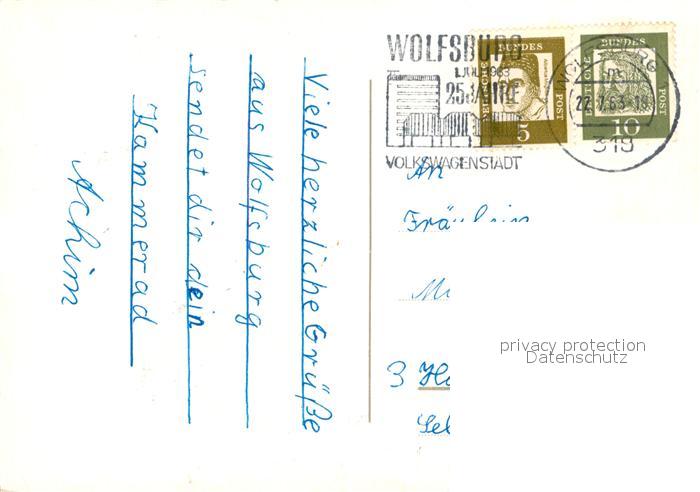 Viele herzliche Grüße
aus Wolfsburg
sendet dir dein
Kammerad
Achim
WOLFSBURG
1. JULI 1963
25 JAHRE
VOLKSWAGENSTADT
DEUTSCHE BUNDES POST
5
DEUTSCHE BUNDES POST
10
WOLFSBURG
22.7.63-18
318
An
Fräulein
3
privacy protection
Datenschutz